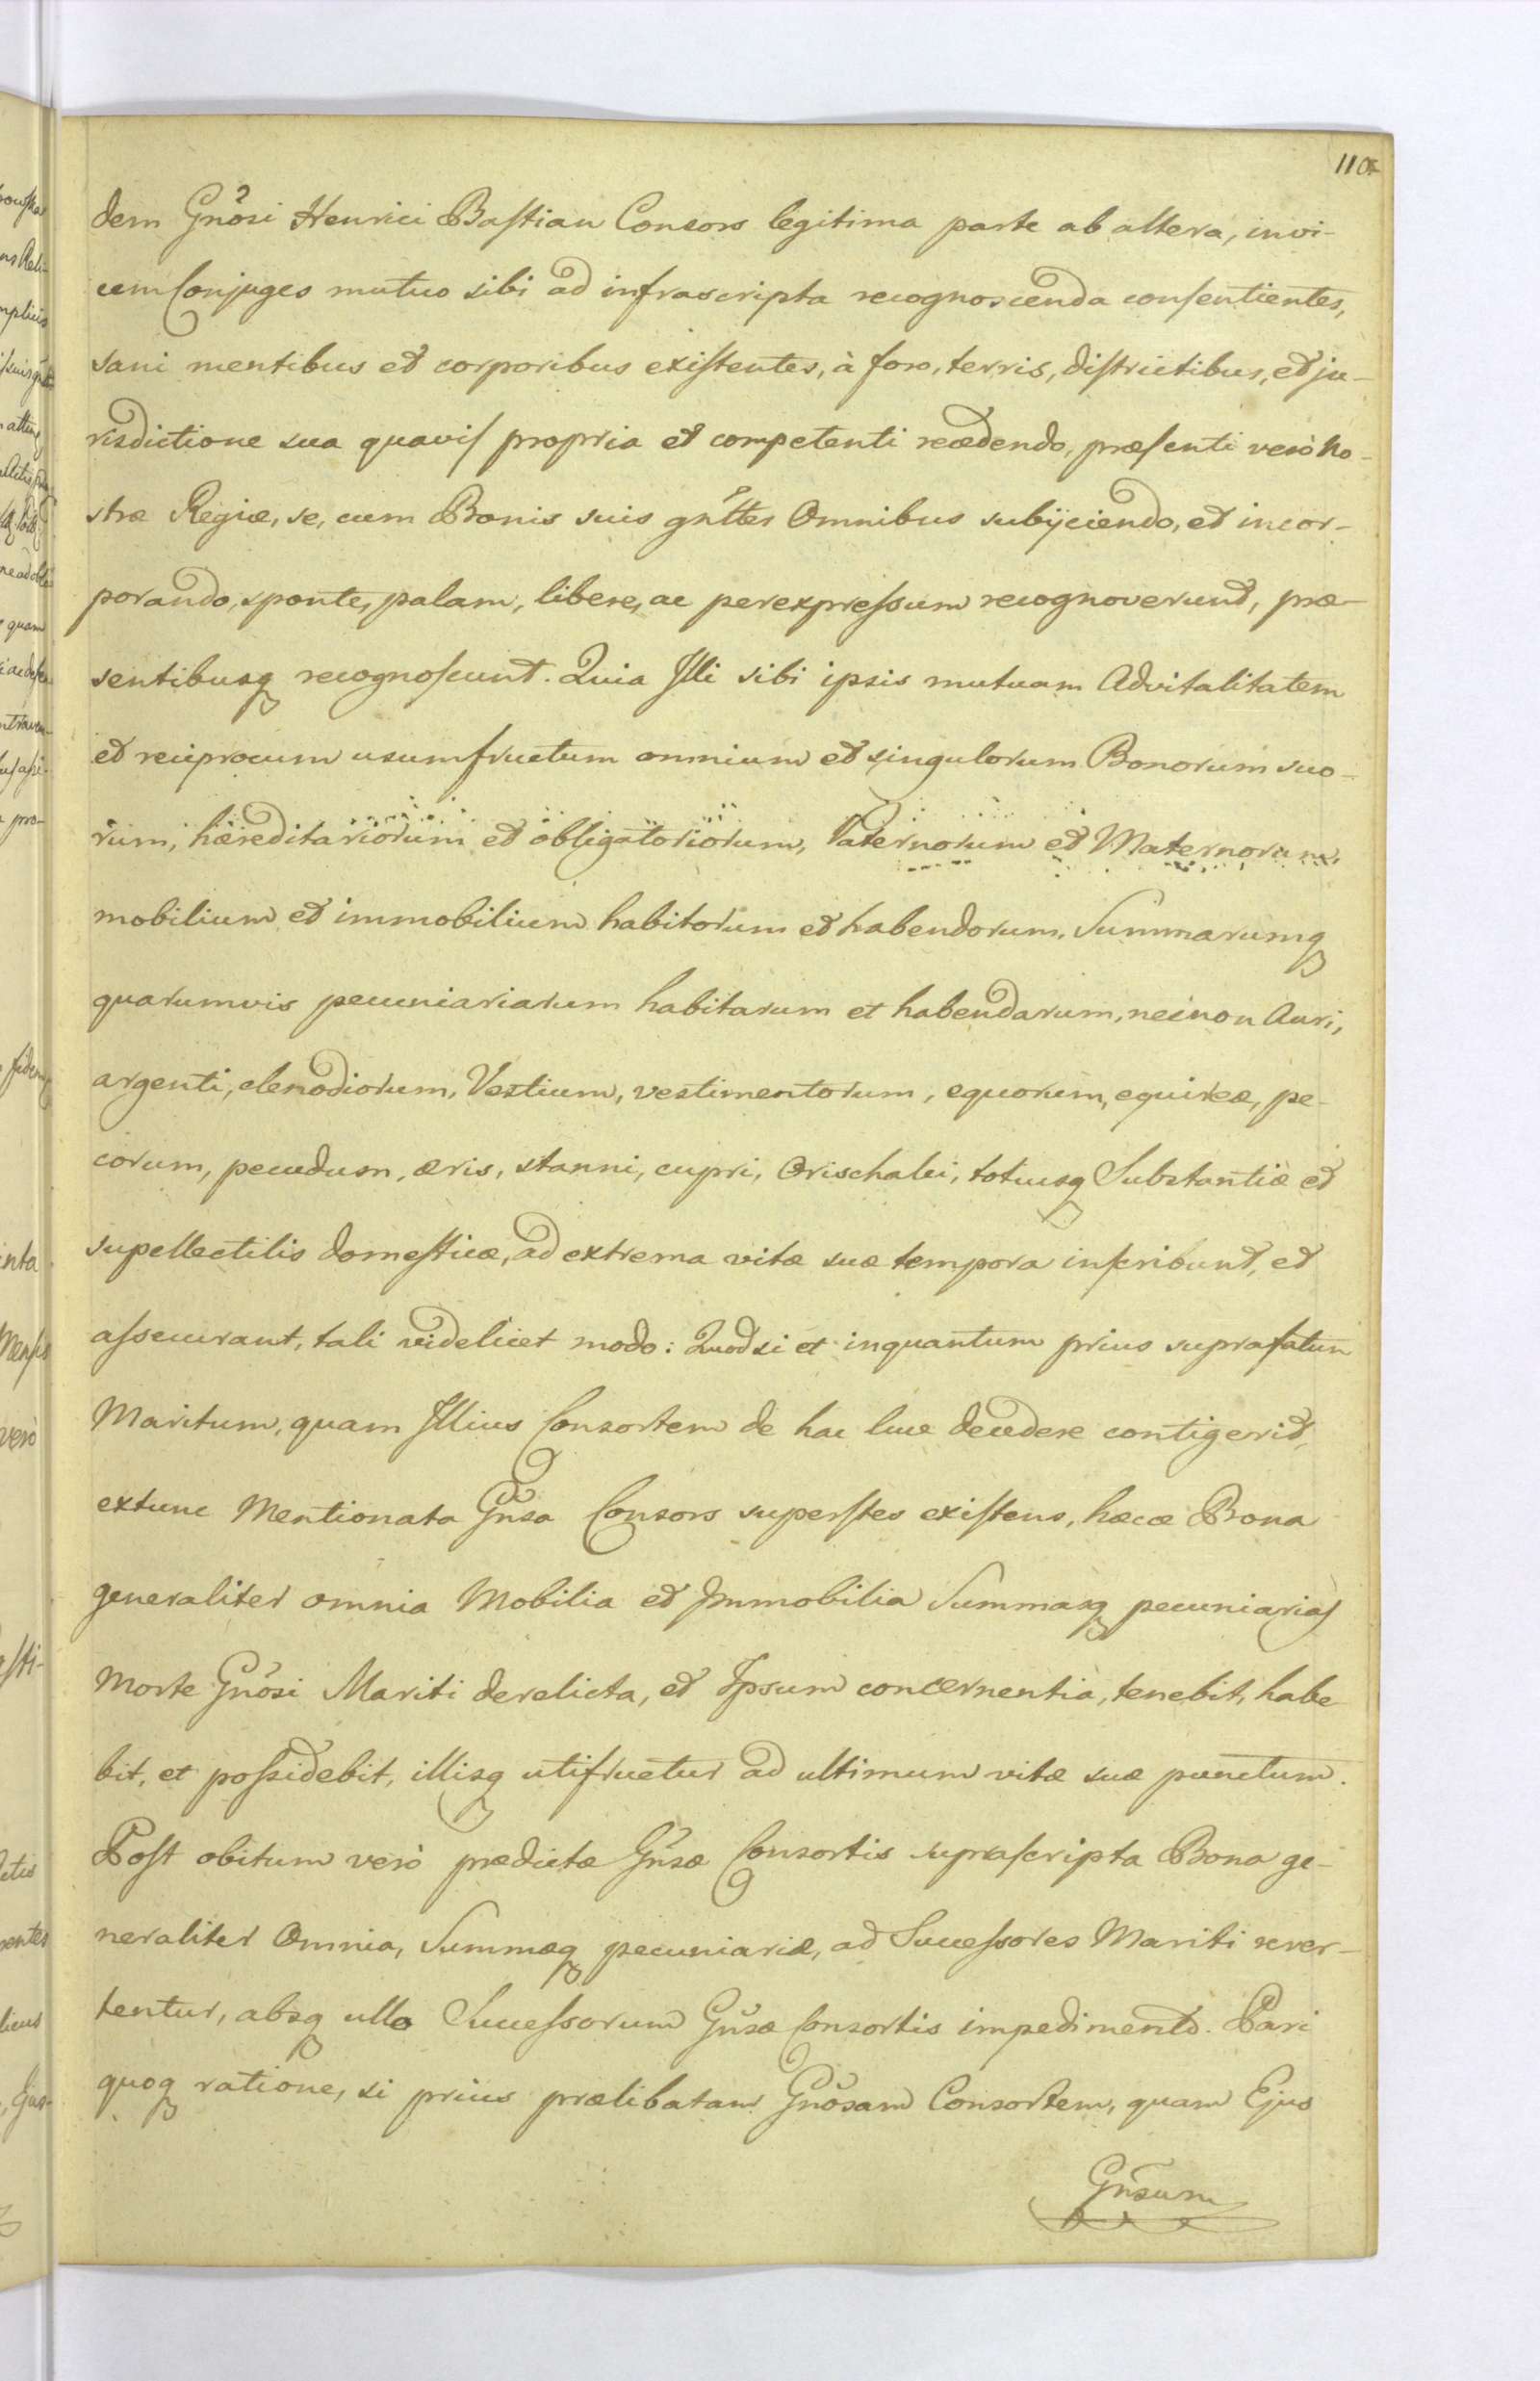 110
dem Gnõsi Henrici Bastian Consors legitima parte ab altera, invi-
cem Conjuges mutuo sibi ad infrascripta recognoscenda consentientes,
sani mentibus et corporibus existentes, à foro, terris, districtibus, et ju-
risdictione sua quavis propria et competenti recedendo, præsenti verò No-
stræ Regiæ, se, cum Bonis suis gñlter Omnibus subijciendo, et incor-
porando, sponte, palam, libere, ac per expressum recognoverunt, præ-
sentibusq recognoscunt. Quia Illi sibi ipsis mutuam Advitalitatem
et reciprocum usumfructum omnium et singulorum Bonorum suo-
rum, hæreditariorum et obligatoriorum, Paternorum et Maternorum,
mobilium et immobilium habitorum et habendorum, Summarumq
quarumvis pecuniariarum habitarum et habendarum, necnon Auri,
argenti, clenodiorum, Vestium, vestimentorum, equorum, equireæ, pe-
corum, pecudum, æris, stanni, cupri, Orischalci, totiusq Substantiæ et
supellectilis domesticæ, ad extrema vitæ suæ tempora inscribunt, et
assecurant, tali videlicet modo: Quod si et inquantum prius suprafatum
Maritum, quam Illius Consortem de hac luce decedere contigerit,
extunc Mentionata Gñsa Consors superstes existens, hæcce Bona
generaliter omnia Mobilia et Immobilia Summasq pecuniarias
morte Gnõsi Mariti derelicta, et Ipsum concernentia, tenebit, habe
bit, et possidebit, illisq utifruetur ad ultimum vitæ suæ punctum.
Post obitum verò prædictæ Gñsæ Consortis suprascripta Bona ge-
neraliter Omnia, Summæq pecuniariæ, ad Successores Mariti rever-
tentur, absq ullo Successorum Gñsæ Consortis impedimento. Pari
quoq ratione, si prius prælibatam Gnõsam Consortem, quam Ejus
Gñsum